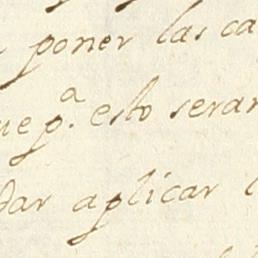 poner las ca
ue p.ª esto seran
dar aplicar